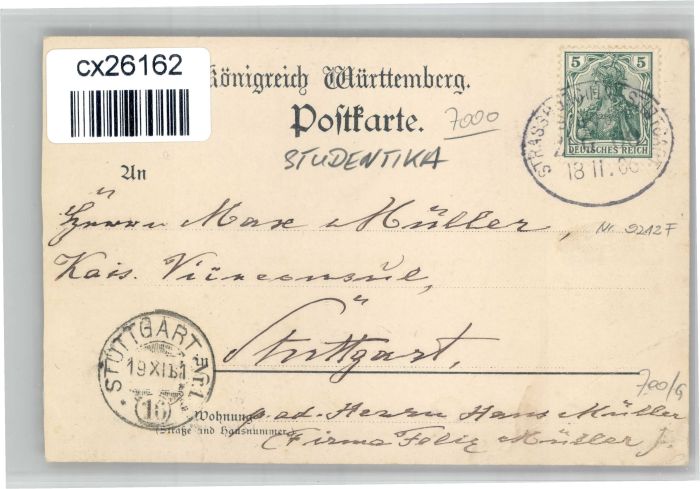 cx26162
Königreich Württemberg.
Postkarte.
7000
STUDENTIKA
5 5
DEUTSCHES REICH
STRASSB STUTTGART
18 11. 06
An
Herrn Max Müller,
Nr. 9242F
Kais. Viceconsul,
Stuttgart,
STUTTGART NO.1
19 XI
(16)
700/G
Wohnung
(Straße und Hausnummer)
p. ad. Herrn Hans Müller
(Firma Felix Müller).